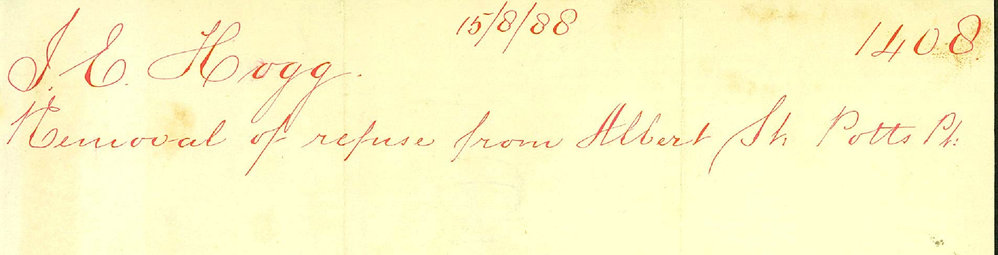 15/8/88
1408
J. E. Hogg.
Removal of refuse from Albert St. Potts Pt.